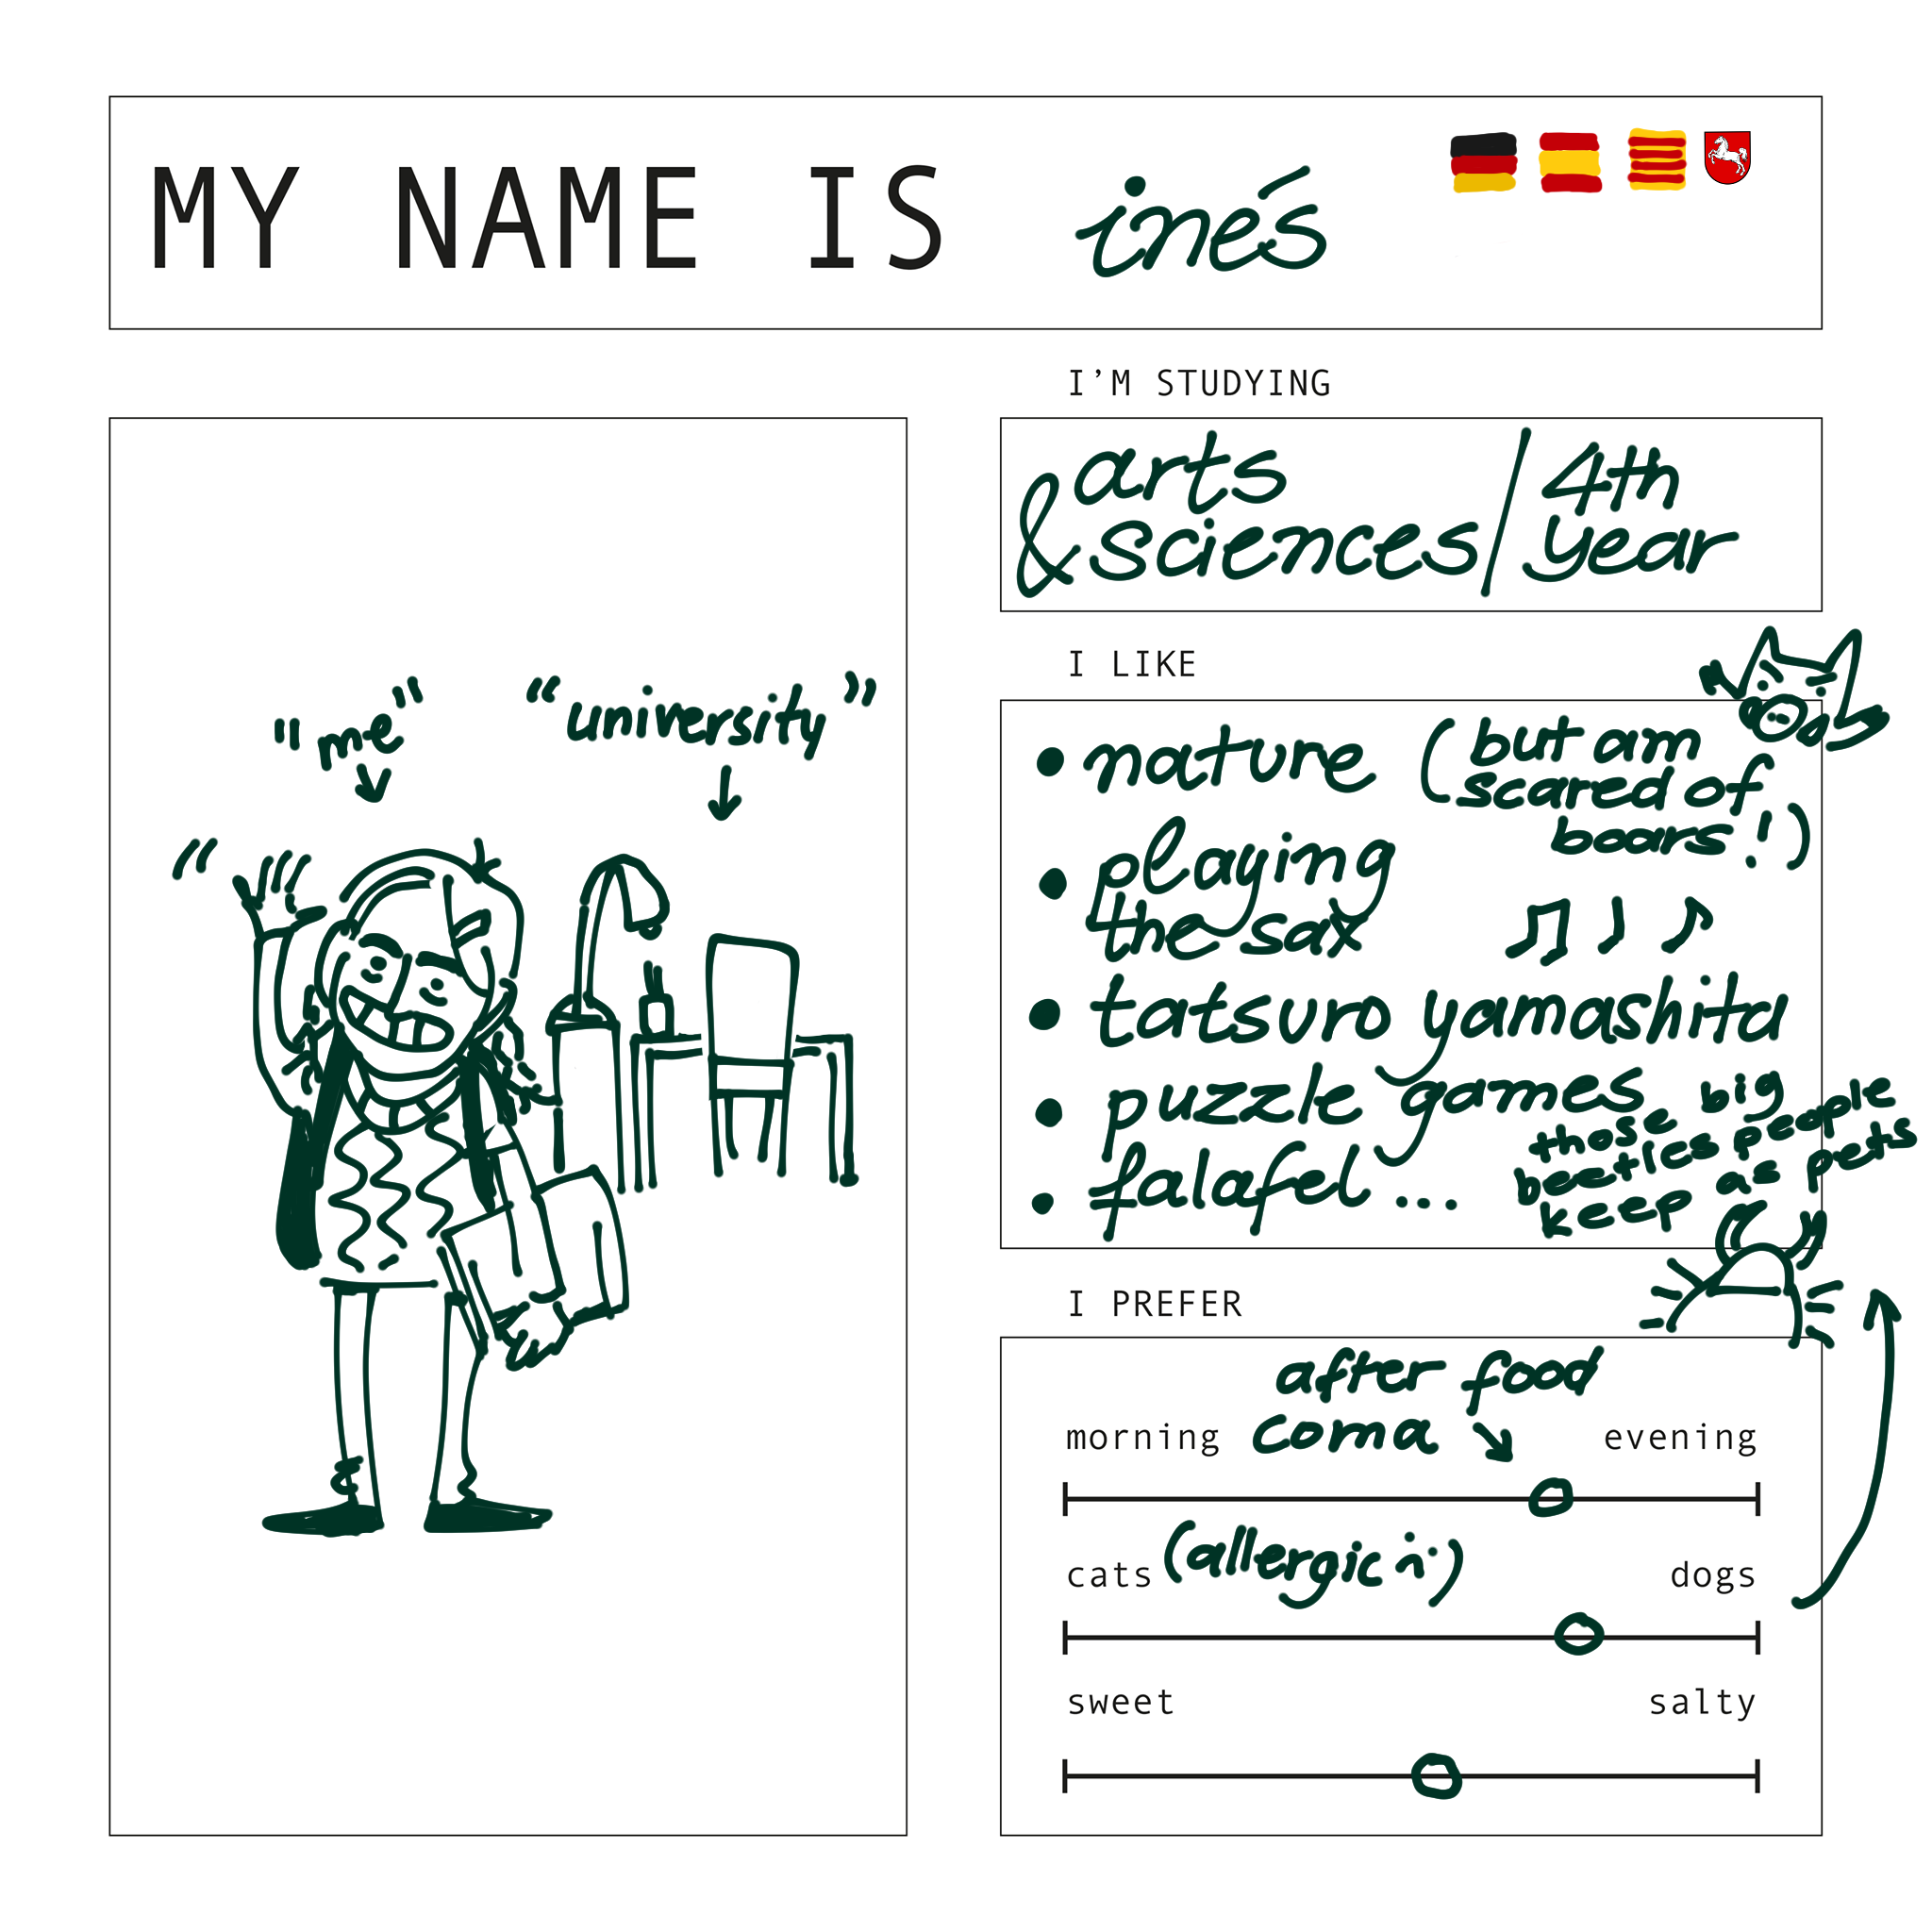 MY NAME IS inés
"me"
"university"
I'M STUDYING
arts
& sciences / 4th
year
I LIKE
• nature (but am
scared of
boars!)
• playing
the sax
• tatsuro yamashita
• puzzle games
• falafel ...
those big
beetles people
keep as pets
I PREFER
after food
coma
morning evening
cats (allergic :) dogs
sweet salty